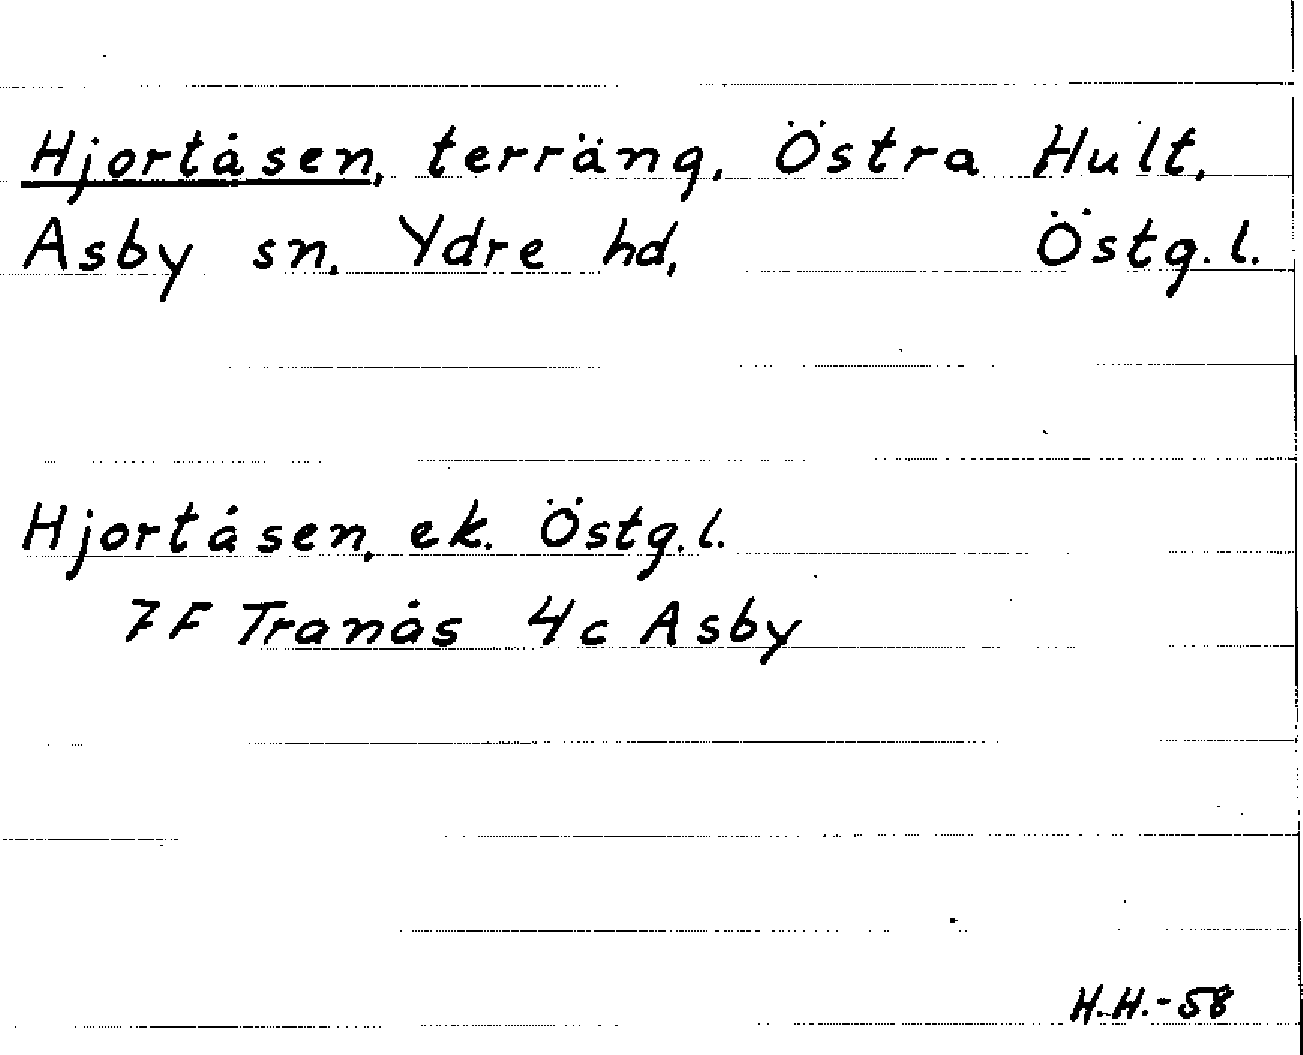 Hjortåsen, terräng, Östra Hult,
Asby sn. Ydre hd, Östg.l.
Hjortåsen, ek. Östg.l.
7F Tranås 4c Asby
H.H.-58